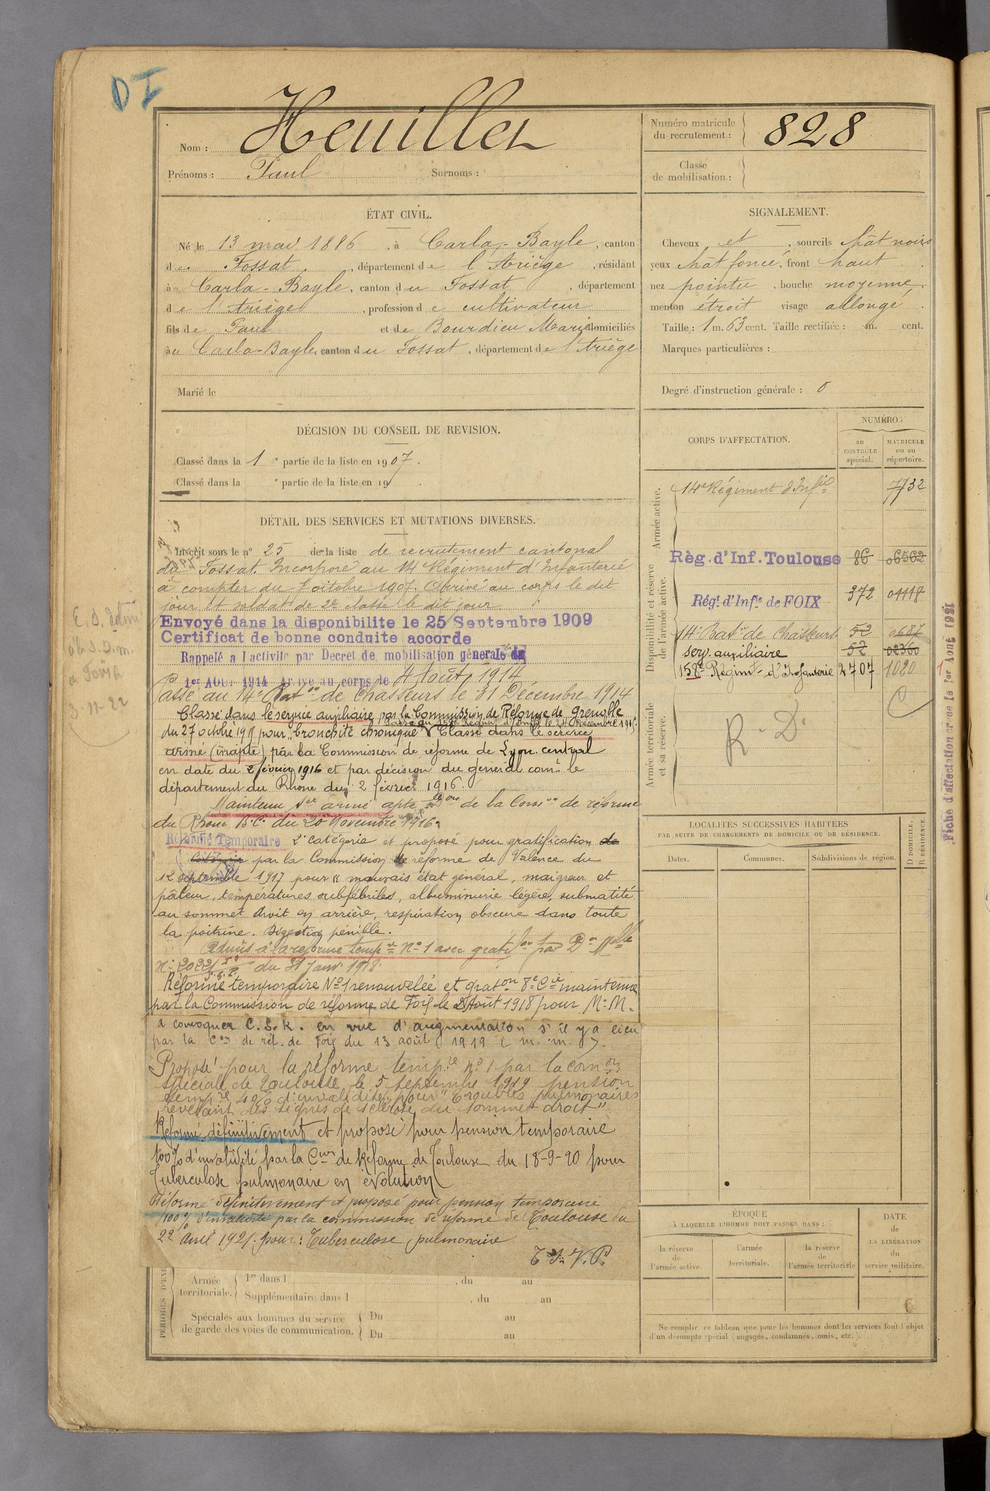 DI
Nom : Heuillet
Prénoms : Paul Surnoms :
Numéro matricule du recrutement : 828
Classe de mobilisation :
ÉTAT CIVIL.
Né le 13 mai 1886, à Carla-Bayle, canton
de Fossat, département de l'Ariège, résidant
à Carla-Bayle, canton du Fossat, département
de l'Ariège, profession de cultivateur
fils de Paul et de Bourdieu Marie domiciliés
à Carla-Bayle, canton du Fossat, département de l'Ariège
Marié le
SIGNALEMENT.
Cheveux et sourcils chât noirs
yeux chât foncé, front haut
nez pointu, bouche moyenne,
menton étroit visage allongé
Taille : 1 m. 63 cent. Taille rectifiée : m. cent.
Marques particulières :
Degré d'instruction générale : 0
DÉCISION DU CONSEIL DE REVISION.
Classé dans la 1e partie de la liste en 1907.
Classé dans la e partie de la liste en 19
DÉTAIL DES SERVICES ET MUTATIONS DIVERSES.
Inscrit sous le n° 25 de la liste de recrutement cantonal
du Fossat. Incorporé au 14e Régiment d'Infanterie
à compter du octobre 1907. Arrivé au corps le dit
jour et soldat de 2e classe le dit jour
Envoyé dans la disponibilite le 25 Septembre 1909
Certificat de bonne conduite accorde
Rappelé a l'activite par Decret de mobilisation générale du
1er AOUT 1914 Arrivé au corps le 4 Août 1914
Passé au 14e Baton de Chasseurs le 31 Décembre 1914
Classé dans le service auxiliaire par la Commission de Réforme de Grenoble
du 27 octobre 1915 pour "bronchite chronique" Classé dans le service
armé (inapte) par la Commission de réforme de Lyon central
en date du 2 février 1916 et par décision du général comt le
département du Rhône du 2 février 1916.
Maintenu Sce armé apte de la Comon de réforme
du Rhône du 20 Novembre 1916.
Réformé Temporaire 2e Catégorie et proposé pour gratification de
Catégorie par la Commission de réforme de Valence du
12 septembre 1917 pour "mauvais état général, maigreur et
pâleur, températures subfébriles, albuminurie légère, submatité
au sommet droit en arrière, respiration obscure dans toute
la poitrine. Digestion pénible.
Admis à la réforme tempre N° 1 avec gratifon par Don Mlle
N° 2022 du 31 Janv 1918.
Réforme temporaire N° 1 renouvelée et graton 7e Cie maintenue
par la Commission de réforme de Foix le Août 1918 pour M.M.
à convoquer C.S.R. en vue d'augmentation s'il y a lieu
par la Con de réf. de Foix du 13 août 1919
Proposé pour la réforme tempre n° 1 par la comon
spéciale de Toulouse le 5 Septembre 1919 pension
tempre 40% d'invalidité pour "Troubles pulmonaires
révélant des signes de sclérose du sommet droit"
Réformé définitivement et proposé pour pension temporaire
100% d'invalidité par la Con de Réforme de Toulouse du 18-9-20 pour
Tuberculose pulmonaire en évolution
Réformé définitivement et proposé pour pension temporaire
100% d'invalidité par la commission de réforme de Toulouse du
22 Avril 1921 pour : Tuberculose pulmonaire
Armée territoriale. 1re dans l , du au
Supplémentaire dans l , du au
Spéciales aux hommes du service de garde des voies de communication. Du au
Du au
CORPS D'AFFECTATION.
NUMÉROS
au CONTROLE spécial.
MATRICULE ou au répertoire.
Armée active.
14e Régiment d'Infie 7732
Disponibilité et réserve de l'armée active.
Règ. d'Inf. Toulouse 86 06562
Régt d'Infie de FOIX 372 04118
14e Baton de Chasseurs 52 0687
Serv. auxiliaire 52 02360
158e Régimt d'Infanterie 2707 1080
Armée territoriale et sa réserve.
R.D.
Fiche d'affectation du 1er Août 1921
LOCALITÉS SUCCESSIVES HABITÉES
PAR SUITE DE CHANGEMENTS DE DOMICILE OU DE RÉSIDENCE.
Dates. Communes. Subdivisions de région. D DOMICILE. R RÉSIDENCE.
ÉPOQUE
À LAQUELLE L'HOMME DOIT PASSER DANS :
la réserve de l'armée active.
l'armée territoriale.
la réserve de l'armée territoriale
DATE de LA LIBÉRATION du service militaire.
Ne remplir ce tableau que pour les hommes dont les services font l'objet
d'un décompte spécial (engagés, condamnés, omis, etc.).